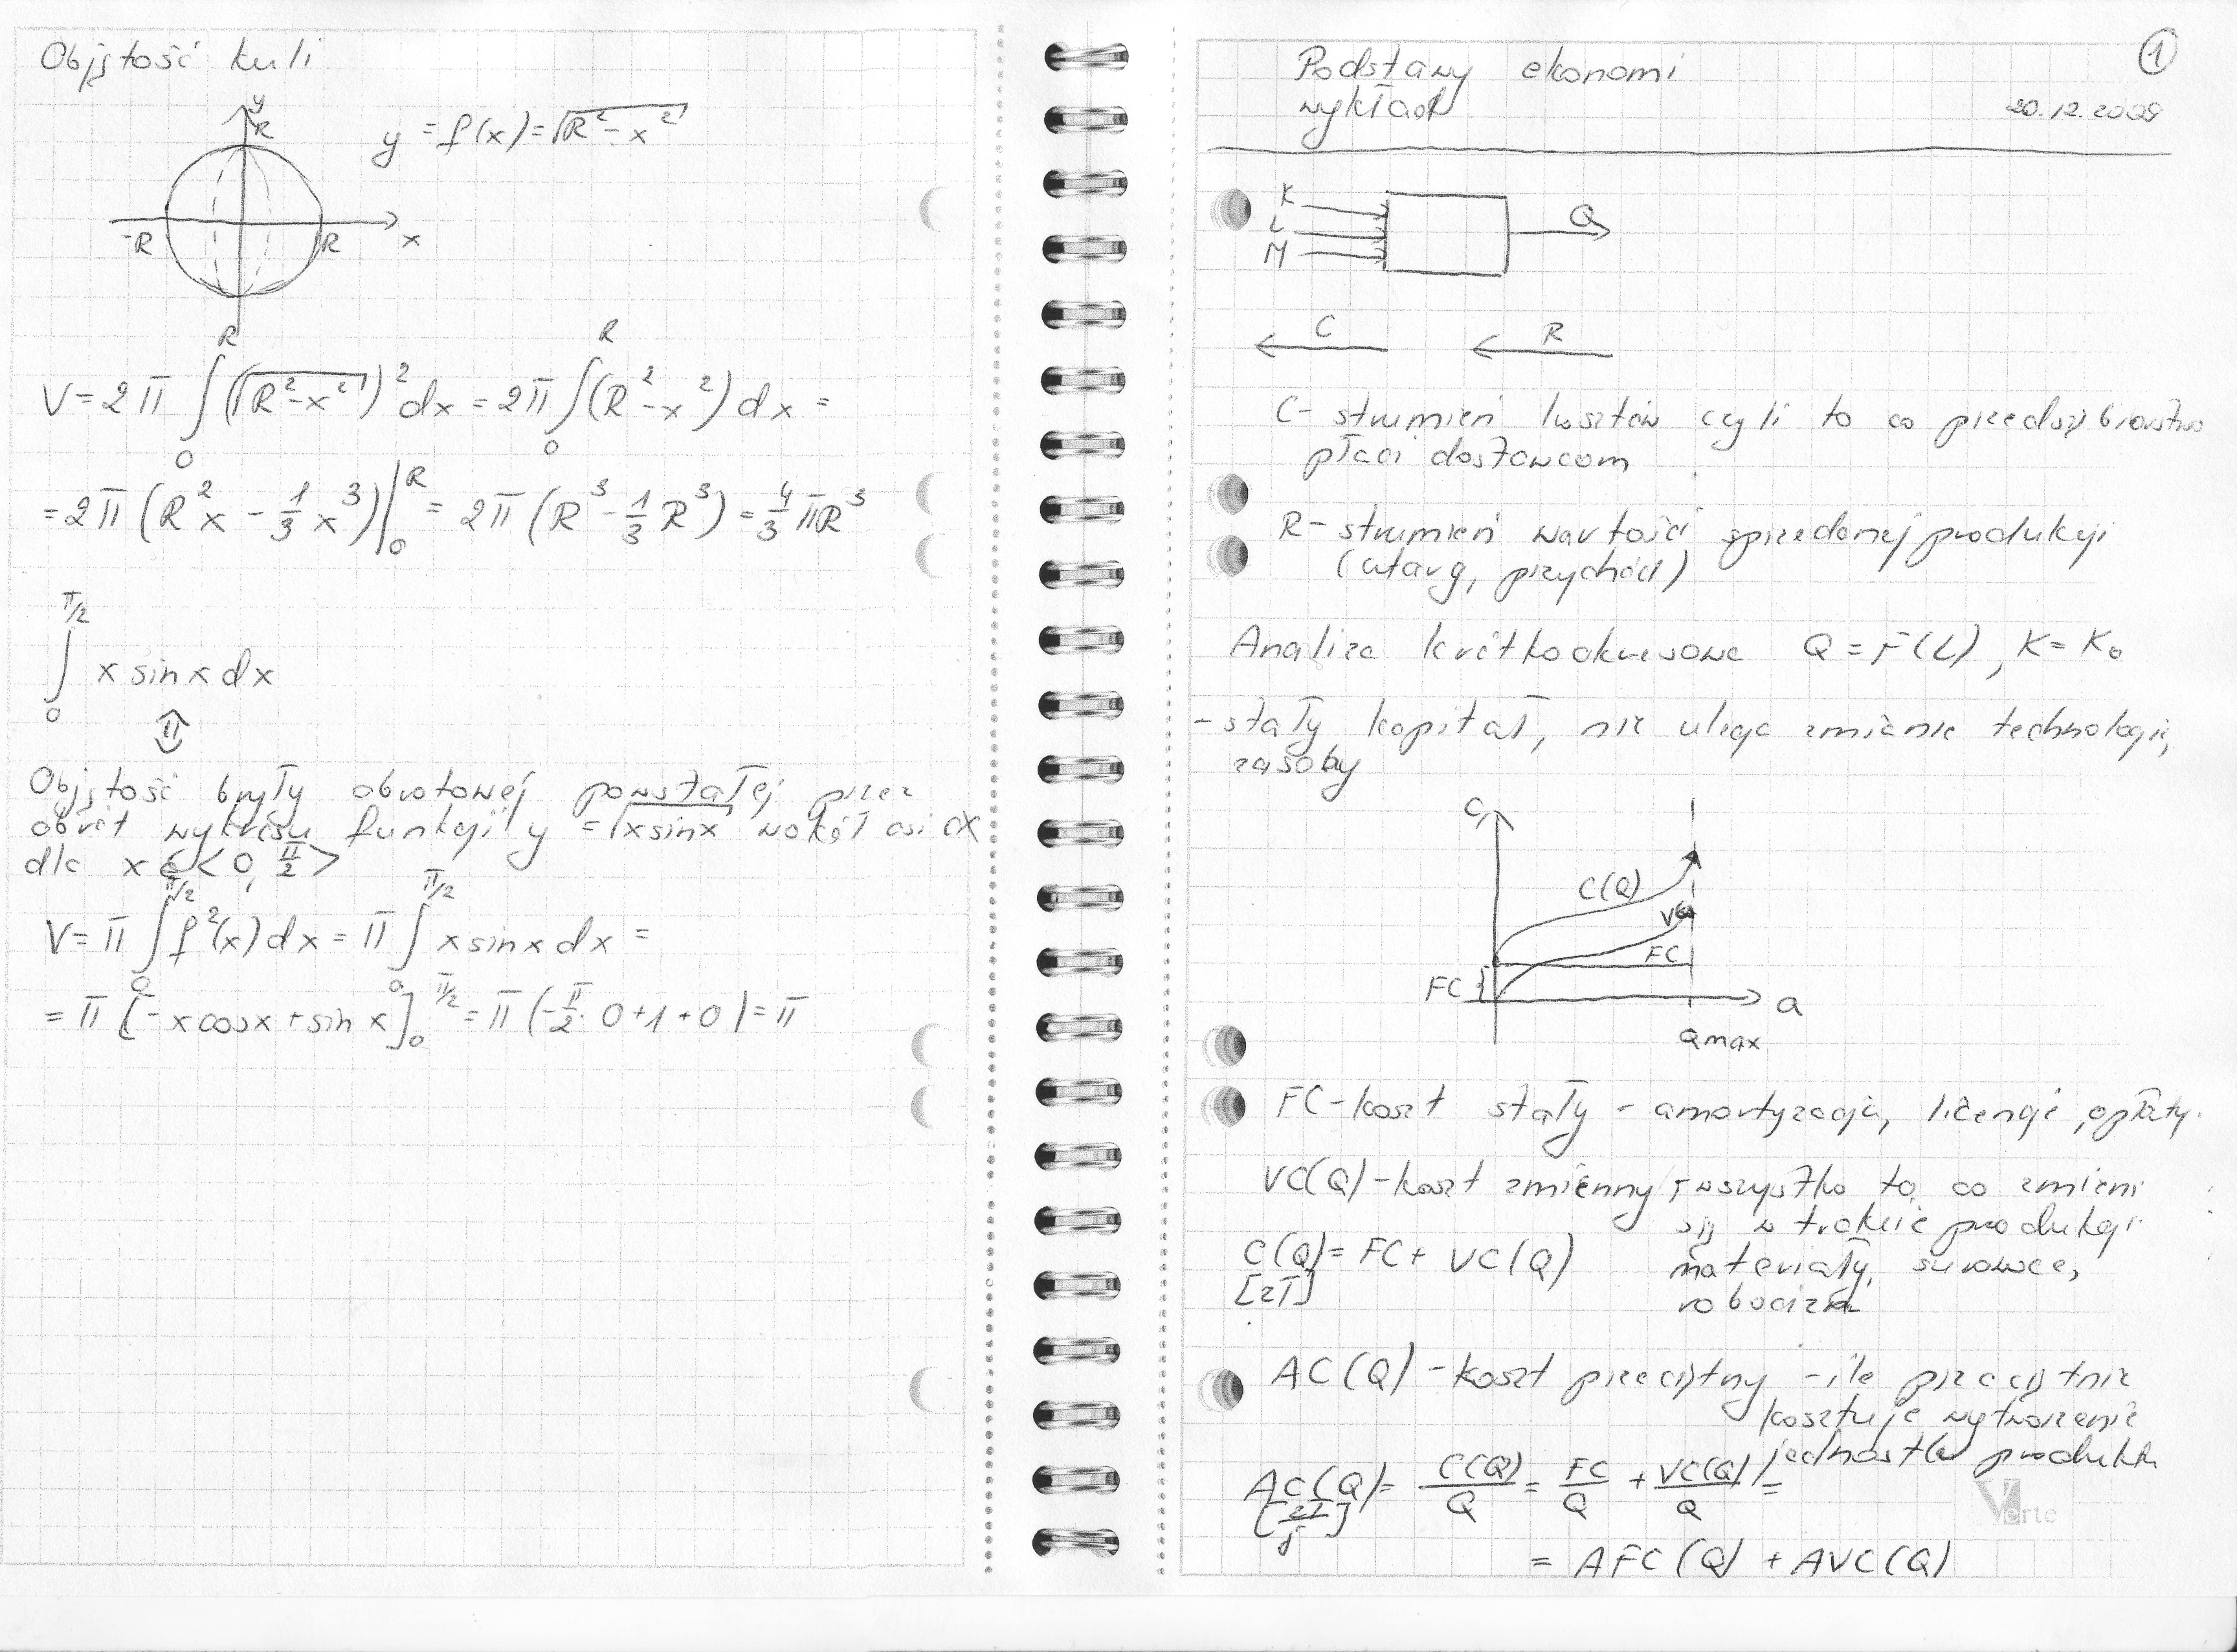 Objętość kuli
y
R
y = f(x) = √(R² - x²)
-R R x
V = 2π ∫₀ᴿ (√(R² - x²))² dx = 2π ∫₀ᴿ (R² - x²) dx =
= 2π (R²x - 1/3 x³) |₀ᴿ = 2π (R³ - 1/3 R³) = 4/3 πR³
∫₀^(π/2) x sin x dx
⇕
Objętość bryły obrotowej powstałej przez
obrót wykresu funkcji y = √(x sin x) wokół osi OX
dla x ∈ <0, π/2>
V = π ∫₀^(π/2) f²(x) dx = π ∫₀^(π/2) x sin x dx =
= π [-x cos x + sin x]₀^(π/2) = π (-π/2 · 0 + 1 + 0) = π
①
Podstawy ekonomi
wykład
20.12.2009
K
L
M
Q
C R
C - strumień kosztów czyli to co przedsiębiorstwo
płaci dostawcom
R - strumień wartości sprzedanej produkcji
(utarg, przychód)
Analiza krótkookresowa Q = F(L), K = K₀
- stały kapitał, nie ulega zmianie technologia,
zasoby
C
C(Q)
VC
FC
FC { Q
Qmax
FC - koszt stały - amortyzacja, licencje, opłaty.
VC(Q) - koszt zmienny, wszystko to, co zmieni
się w trakcie produkcji
C(Q) = FC + VC(Q) materiały, surowce,
[zł] robocizna
AC(Q) - koszt przeciętny - ile przeciętnie
kosztuje wytworzenie
jednostki produktu
AC(Q) = C(Q)/Q = FC/Q + VC(Q)/Q =
[zł/j]
= AFC(Q) + AVC(Q)
Verte